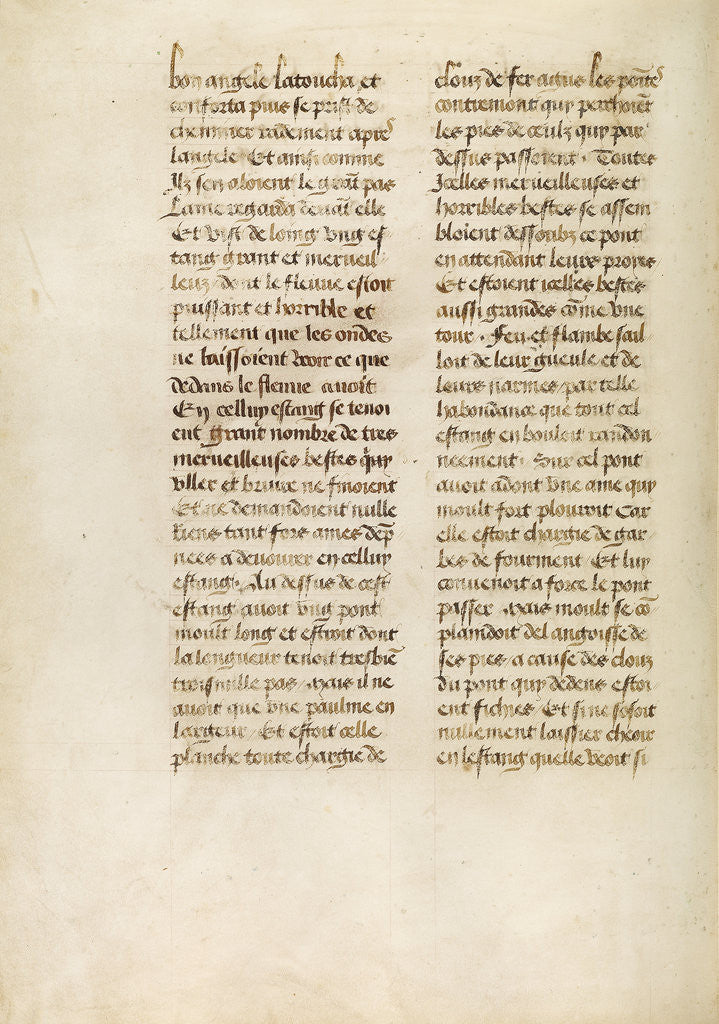 bon angele latoucha et
conforta puis se prist de
cheminer radement apres
langele Et ainsi comme
Ilz sen aloient le grãt pas
Lame regarda deuãt elle
Et vist de loing vng es
tang grant et merueil
leux dont le fleuue estoit
puissant et horrible et
tellement que les ondes
ne laissoient veoir ce que
dedans le fleuue auoit
En celluy estang se tenoi
ent grant nombre de tres
merueilleuses bestes quy
vller et bruire ne finoient
Et ne demandoient nulle
Riens tant fors ames dãp
nees a deuourer en celluy
estang. Au dessus de cest
estang auoit vng pont
moult long et estroit dont
la longueur tenoit tresbiẽ
trois mille pas. Mais il ne
auoit que vne paulme en
largeur. Et estoit celle
planche toute chargie de
clouz de fer agus les pointes
contremont quy perchoiẽt
les pies de ceulz quy par
dessus passoient. Toutes
Icelles merueilleuses et
horribles bestes se assem
bloient dessoubz ce pont
en attendant leurs proyes
Et estoient icelles bestes
aussi grandes cõme vne
tour. Feu et flambe sail
loit de leur gueule et de
leurs narines par telle
habondance que tout cel
estang en bouloit randon
neement. Sur cel pont
auoit adont vne ame quy
moult fort plouroit Car
elle estoit chargie de gar
bes de fourment Et luy
conuenoit a force le pont
passer. Mais moult se cõ
plaindoit del angoisse de
ses pies a cause des clouz
du pont quy dedens estoi
ent fichies Et si ne sosoit
nullement laissier cheoir
en lestang quelle veoit si